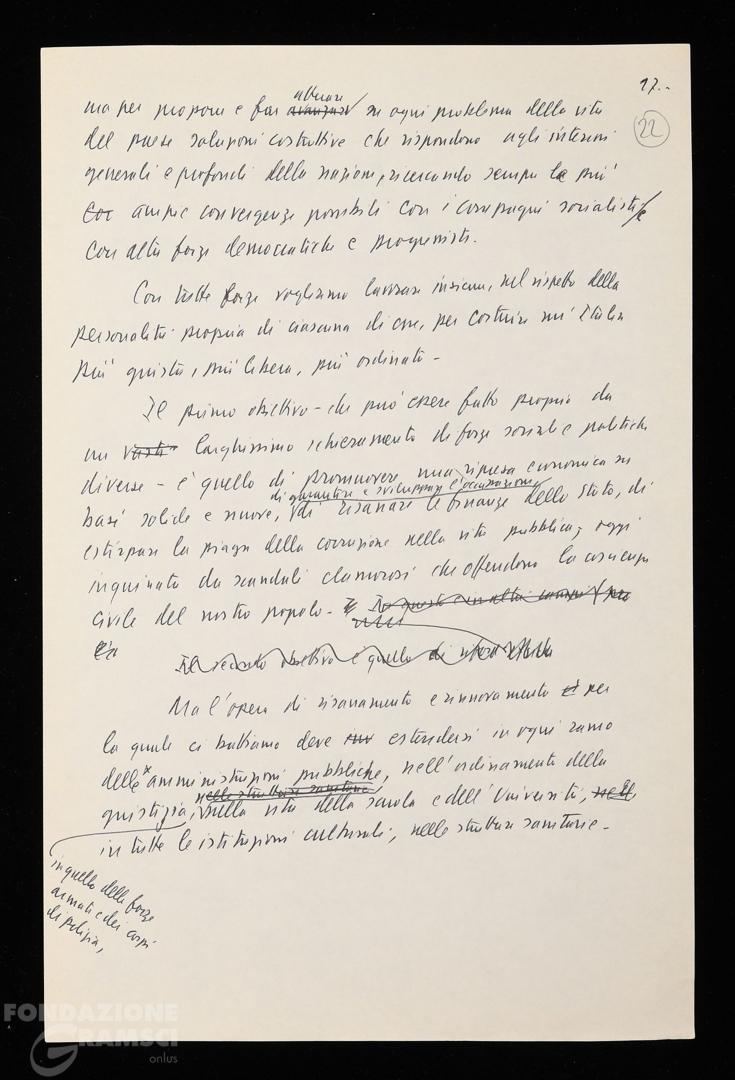 17.-
22
ma per proporre e far avanzare attuare su ogni problema della vita
del paese soluzioni costruttive che rispondono agli interessi
generali e profondi della nazione, ricercando sempre le più
ampie convergenze possibili con i compagni socialisti e
con altre forze democratiche e progressiste.
Con tutte forze vogliamo lavorare insieme, nel rispetto della
personalità propria di ciascuna di esse, per costruire un'Italia
più giusta, più libera, più ordinata -
Il primo obiettivo - che può essere fatto proprio da
un vasto larghissimo schieramento di forze sociali e politiche
diverse - è quello di promuovere una ripresa economica su
di garantire e sviluppare l'occupazione,
basi solide e nuove, di risanare le finanze dello Stato, di
estirpare la piaga della corruzione nella vita pubblica, oggi
inquinata da scandali clamorosi che offendono la coscienza
civile del nostro popolo -
Il secondo obiettivo è quello di
Ma l'opera di risanamento e rinnovamento per
la quale ci battiamo deve estendersi in ogni ramo
delle amministrazioni pubbliche, nell'ordinamento della
nelle strutture sanitarie
giustizia, nella vita della scuola e dell'Università, nelle
in tutte le istituzioni culturali, nelle strutture sanitarie -
in quello delle forze
armate e dei corpi
di polizia,
FONDAZIONE
GRAMSCI
onlus